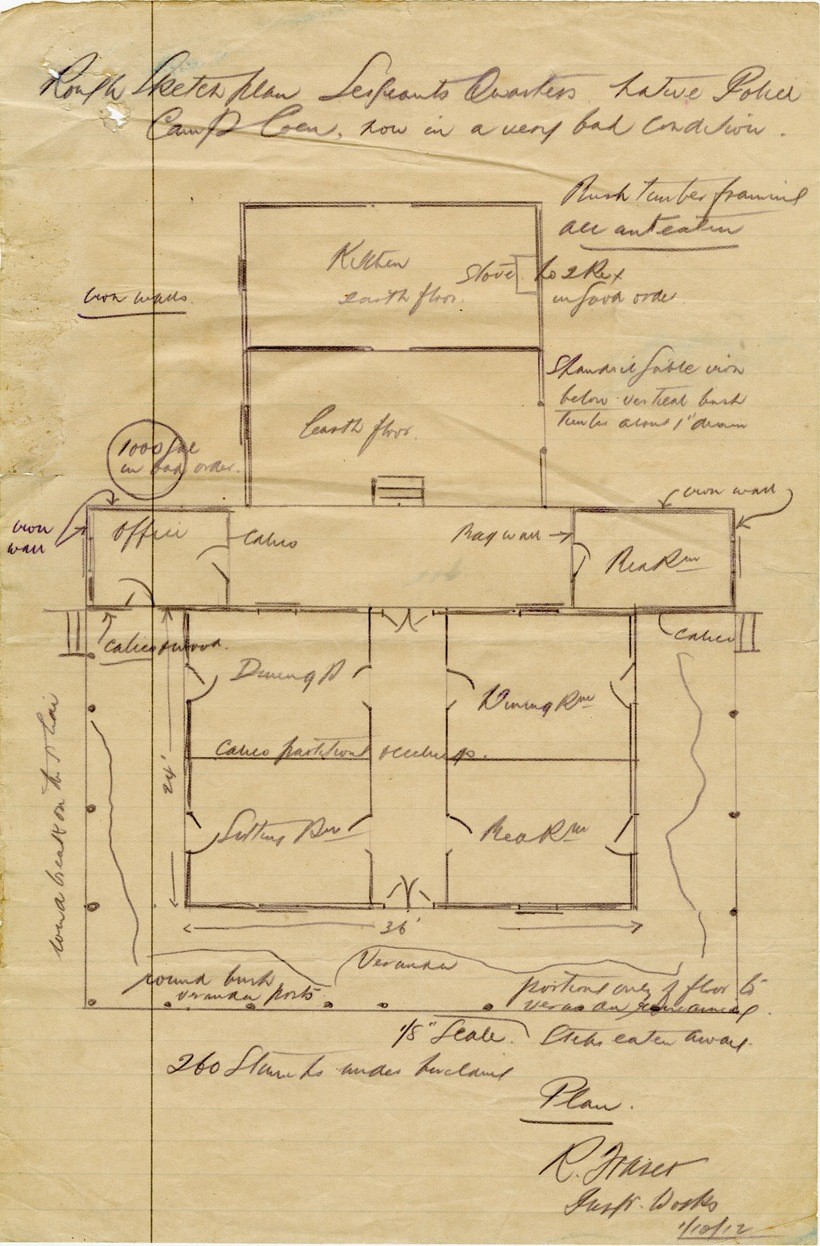 Rough Sketch plan Sergeants Quarters Native Police
Camp Coen, now in a very bad condition.
Bush timber framing
all ant eaten
Kitchen
earth floor.
Stove No 2 Rex
in good order
iron walls
iron
below vertical bush
timber about 1" down
earth floor.
1000 gal
in bad order.
iron wall
iron
wall
Office
Calico
Bag wall
Bed Rm
Calico & wood.
Calico
Dining R
Dining Rm
Calico partitions & ceilings.
24'
Sitting Rm
Bed Rm
36'
Veranda
round bush
veranda posts
portions only of floor to
verandah remaining
1/8" Scale.
Steps eaten away.
260 Stumps under building
Plan.
R. Fraser
Inspr. Works
1/10/12